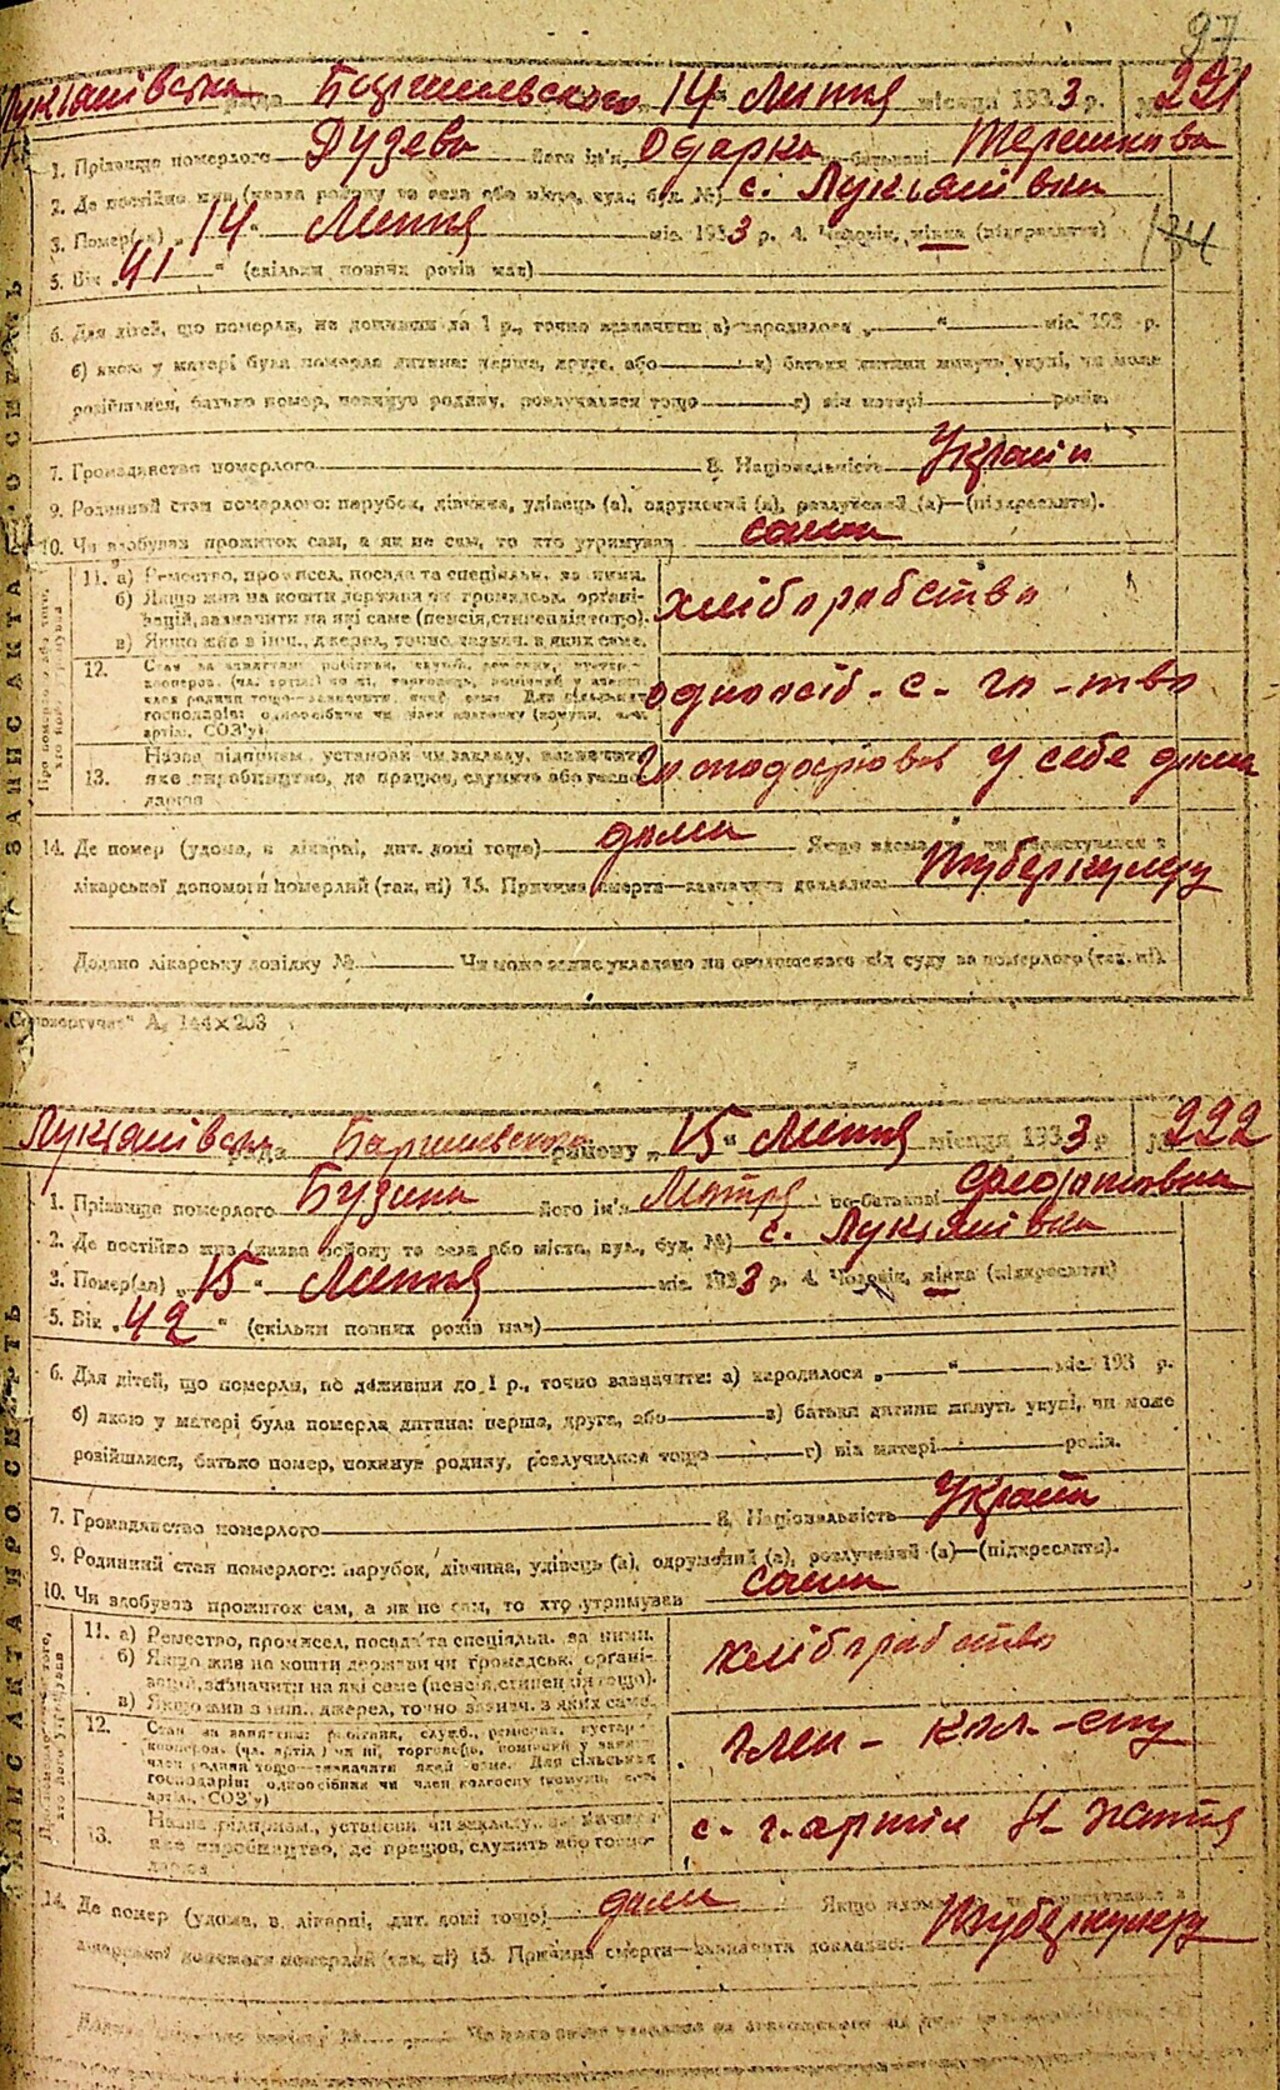 97
Лукіянівська рада Баришевського 14 Липня місяця 1933 р. № 221
1. Прізвище померлого Дудева його ім'я Одарка по-батькові Терешкова
2. Де постійно жив (назва району та села або міста, вул., буд. №) с. Лукіянівка
3. Помер(ла) „14" Липня міс. 1933 р. 4. Чоловік, жінка (підкреслити)
134
5. Вік „41" (скільки повних років мав)
6. Для дітей, що померли, не доживши до 1 р., точно зазначити: а) народилося „ " міс. 193 р.
б) якою у матері була померла дитина: перша, друга, або в) батьки дитини живуть укупі, чи може
розійшлися, батько помер, покинув родину, розлучилися тощо г) вік матері років.
7. Громадянство померлого 8. Національність Україн
9. Родинний стан померлого: парубок, дівчина, удівець (а), одружений (а), розлучений (а)—(підкреслити).
10. Чи здобував прожиток сам, а як не сам, то хто утримував сама
11. а) Ремество, промисел, посада та спеціяльн. за ними.
б) Якщо жив на кошти держави чи громадськ. органі-
зацій, зазначити на які саме (пенсія, стипендія тощо).
в) Якщо жив з інш. джерел, точно зазнач. з яких саме.
хліборобство
12.
господарів: одноосібник чи член колгоспу
артіл., СОЗ'у)
одноосіб-с-го-тво
13. Назва підприєм., установи чи закладу, зазначити
яке виробництво, де працює, служить або госпо-
дарює
Господарював у себе дома
14. Де помер (удома, в лікарні, дит. домі тощо) дома Якщо вдома, чи користувався з
лікарської допомоги померлий (так, ні) 15. Причина смерти—зазначити докладно: туберкульозу
Додано лікарську довідку № Чи може запис укладено на оголошеного від суду за померлого (так, ні).
А, 144×203
ЗАПИС АКТА ПРО СМЕРТЬ
Лукіянівська рада Баришевського району „15" Липня місяця 1933 р. № 222
1. Прізвище померлого його ім'я Мотря по-батькові
2. Де постійно жив (назва району та села або міста, вул., буд. №) с. Лукіянівка
3. Помер(ла) „15" Липня міс. 1933 р. 4. Чоловік, жінка (підкреслити)
5. Вік „42" (скільки повних років мав)
6. Для дітей, що померли, не доживши до 1 р., точно зазначити: а) народилося „ " міс. 193 р.
б) якою у матері була померла дитина: перша, друга, або в) батьки дитини живуть укупі, чи може
розійшлися, батько помер, покинув родину, розлучилися тощо г) вік матері років.
7. Громадянство померлого 8. Національність Україн
9. Родинний стан померлого: парубок, дівчина, удівець (а), одружений (а), розлучений (а)—(підкреслити).
10. Чи здобував прожиток сам, а як не сам, то хто утримував сама
11. а) Ремество, промисел, посада та спеціяльн. за ними.
б) Якщо жив на кошти держави чи громадськ. органі-
зацій, зазначити на які саме (пенсія, стипендія тощо).
в) Якщо жив з інш. джерел, точно зазнач. з яких саме.
хліборобство
12.
господарів: одноосібник чи член колгоспу
артіл., СОЗ'у)
член - кол-спу
13. Назва підприєм., установи чи закладу, зазначити
яке виробництво, де працює, служить або госпо-
дарює
с. г. артіл
14. Де помер (удома, в лікарні, дит. домі тощо) дома Якщо вдома, чи користувався з
лікарської допомоги померлий (так, ні) 15. Причина смерти—зазначити докладно: туберкульозу
ЗАПИС АКТА ПРО СМЕРТЬ